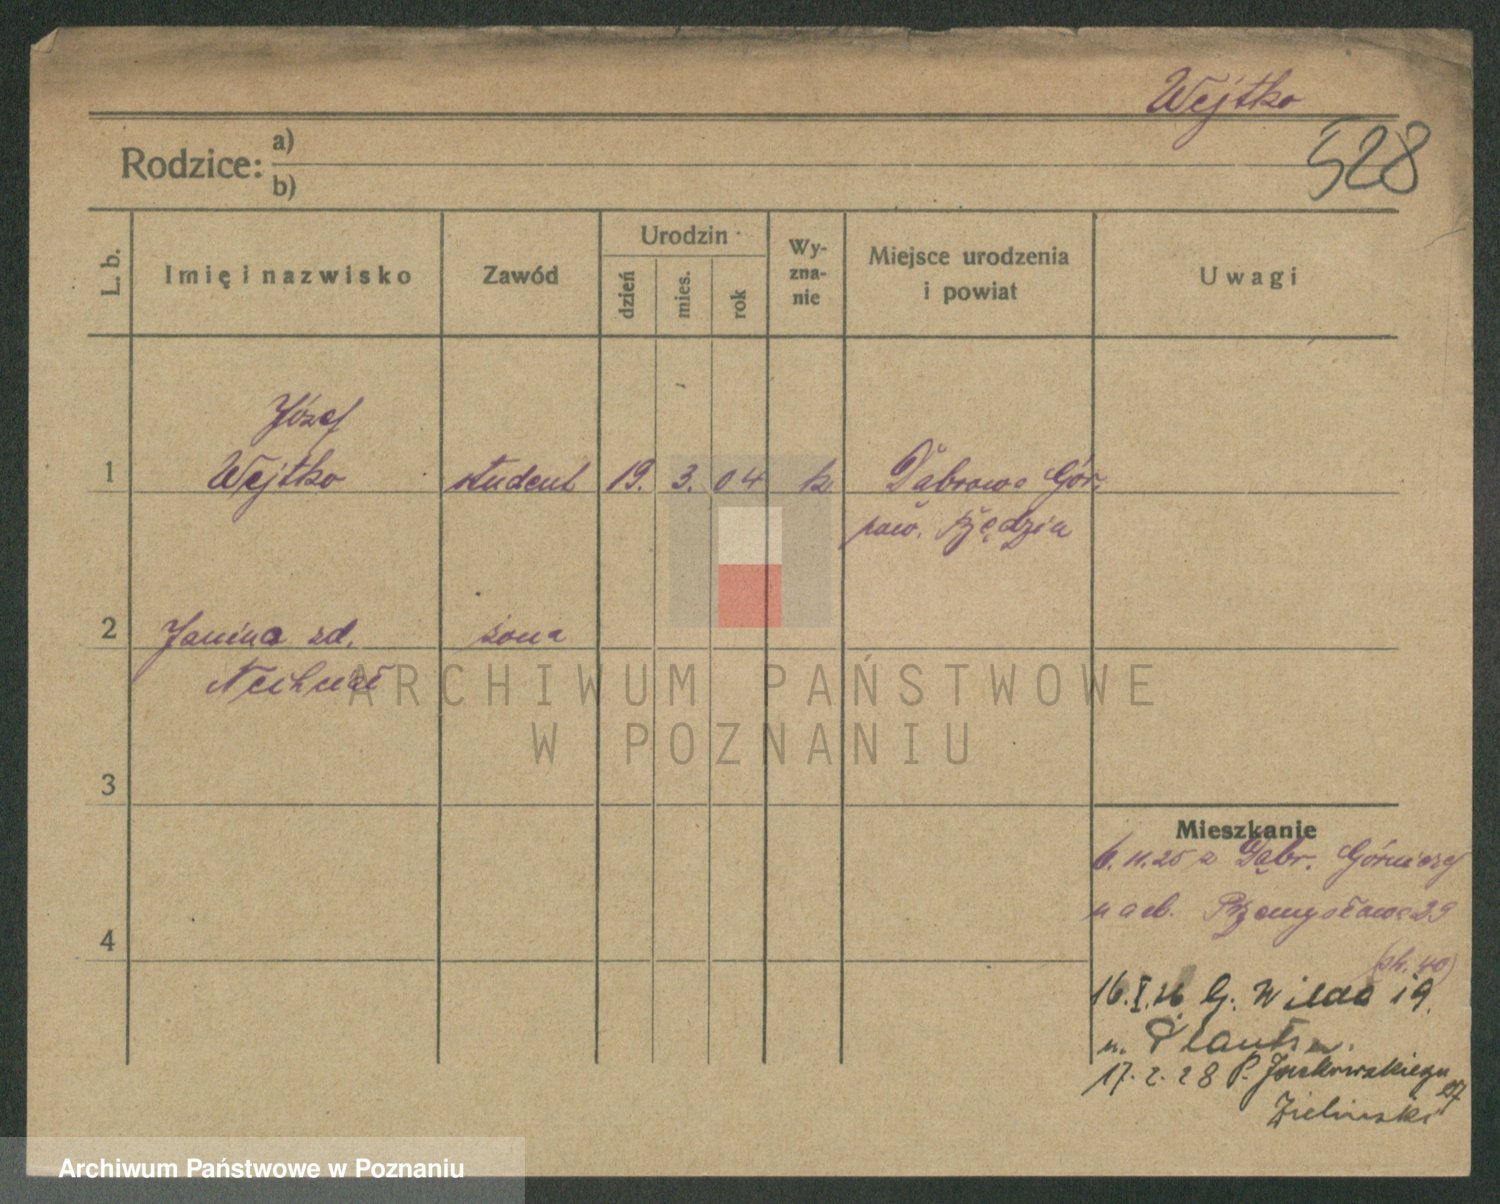 Wejtko
528
Rodzice: a)
b)
L. b.
Imię i nazwisko
Zawód
Urodzin
dzień
mies.
rok
Wy-
zna-
nie
Miejsce urodzenia
i powiat
Uwagi
Józef
1 Wejtko student 19. 3. 04 k Dąbrowa Gór.
pow. Będzin
2 Janina zd. żona
ARCHIWUM PAŃSTWOWE
W POZNANIU
3
Mieszkanie
6.11.25 z Dąbr. Górniczej
Przemysłowa 39
4
16.I.26 G. Wilda 19.
u.
17.2.28 P. Jackowskiego 27
Zielinski
Archiwum Państwowe w Poznaniu